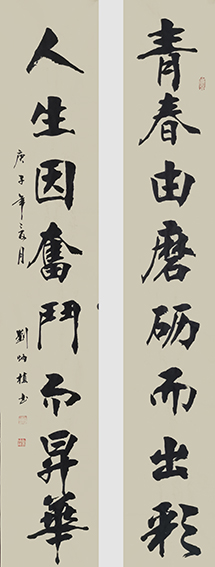 青春由磨砺而出彩
人生因奮鬥而昇華
庚子年三月
劉炳植书